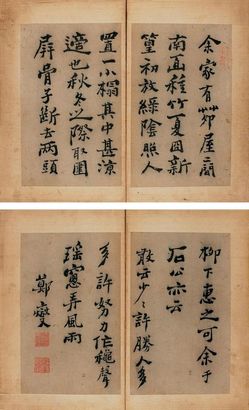 余家有茆屋二間
南面種竹夏日新
篁初放綠陰照人
置一小榻其中甚涼
適也秋冬之際取圍
屏骨子斷去兩頭
柳下惠之可余于
石公亦云
敢云少々許勝人多
多許努力作穐聲
瑤窻弄風雨
鄭燮